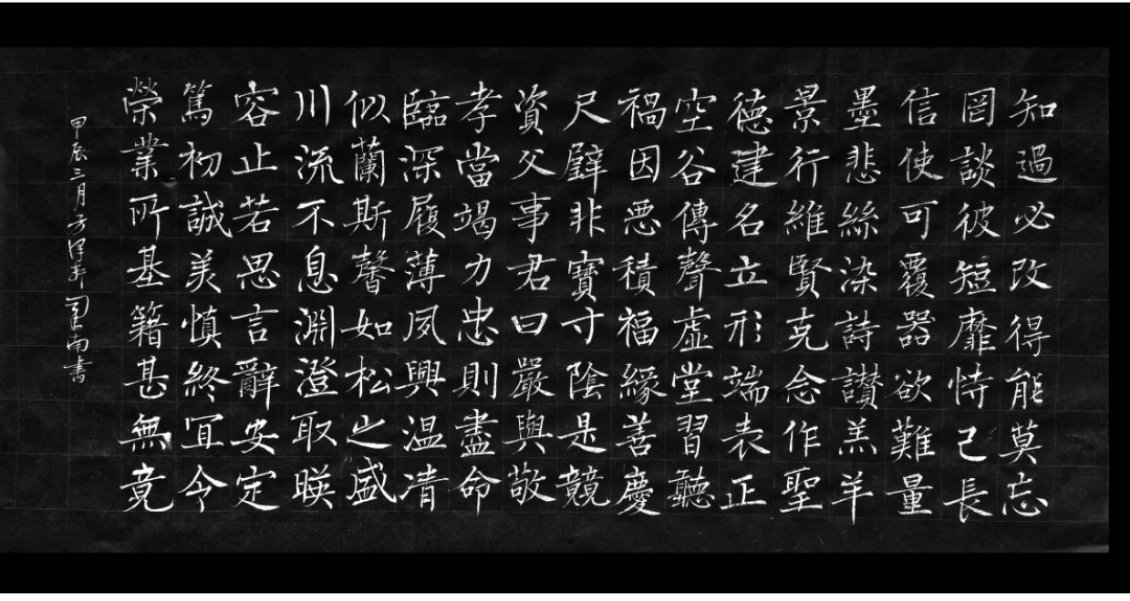 知過必改得能莫忘
罔談彼短靡恃己長
信使可覆器欲難量
墨悲絲染詩讃羔羊
景行維賢克念作聖
德建名立形端表正
空谷傳聲虛堂習聽
禍因悪積福緣善慶
尺璧非寶寸陰是競
資父事君曰嚴與敬
孝當竭力忠則盡命
臨深履薄夙興温凊
似蘭斯馨如松之盛
川流不息淵澄取暎
容止若思言辭安定
篤初誠美慎終宜令
榮業所基籍甚無竟
甲辰三月南書